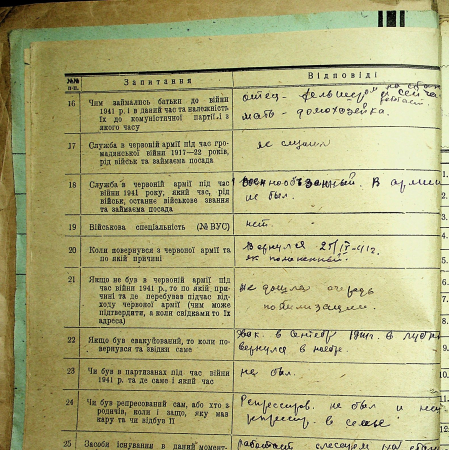 №№
п.п.
Запитання
Відповіді
16
Чим займались батьки до війни
1941 р. і в даний час та належність
їх до комуністичної партії з
якого часу
отец - фельдшером
мать - домохозяйка.
17
Служба в червоній армії під час гро-
мадянської війни 1917—22 років,
рід військ та займаєма посада
не служил
18
Служба в червоній армії під час
війни 1941 року, який час, рід
військ, останнє військове звання
та займаєма посада
военнообязанный. В армии
не был.
19
Військова спеціальність (№ ВУС)
нет.
20
Коли повернувся з червоної армії та
по якій причині
Вернулся
21
Якщо не був в червоній армії під
час війни 1941 р., то по якій при-
чині та де перебував підчас відхо-
ду червоної армії (чим може
підтвердити, а коли свідками то їх
адреса)
не дошла очередь
мобилизации.
22
Якщо був евакуйований, то коли по-
вернувся та звідки саме
эвак. в
вернулся в
23
Чи був в партизанах під час війни
1941 р. та де саме і який час
не был.
24
Чи був репресований сам, або хто з
родичів, коли і защо, яку мав
кару та чи відбув її
Репрессиров. не был и нет
репрессир. в семье
25
Засоби існування в даний момент-
работает слесарем на